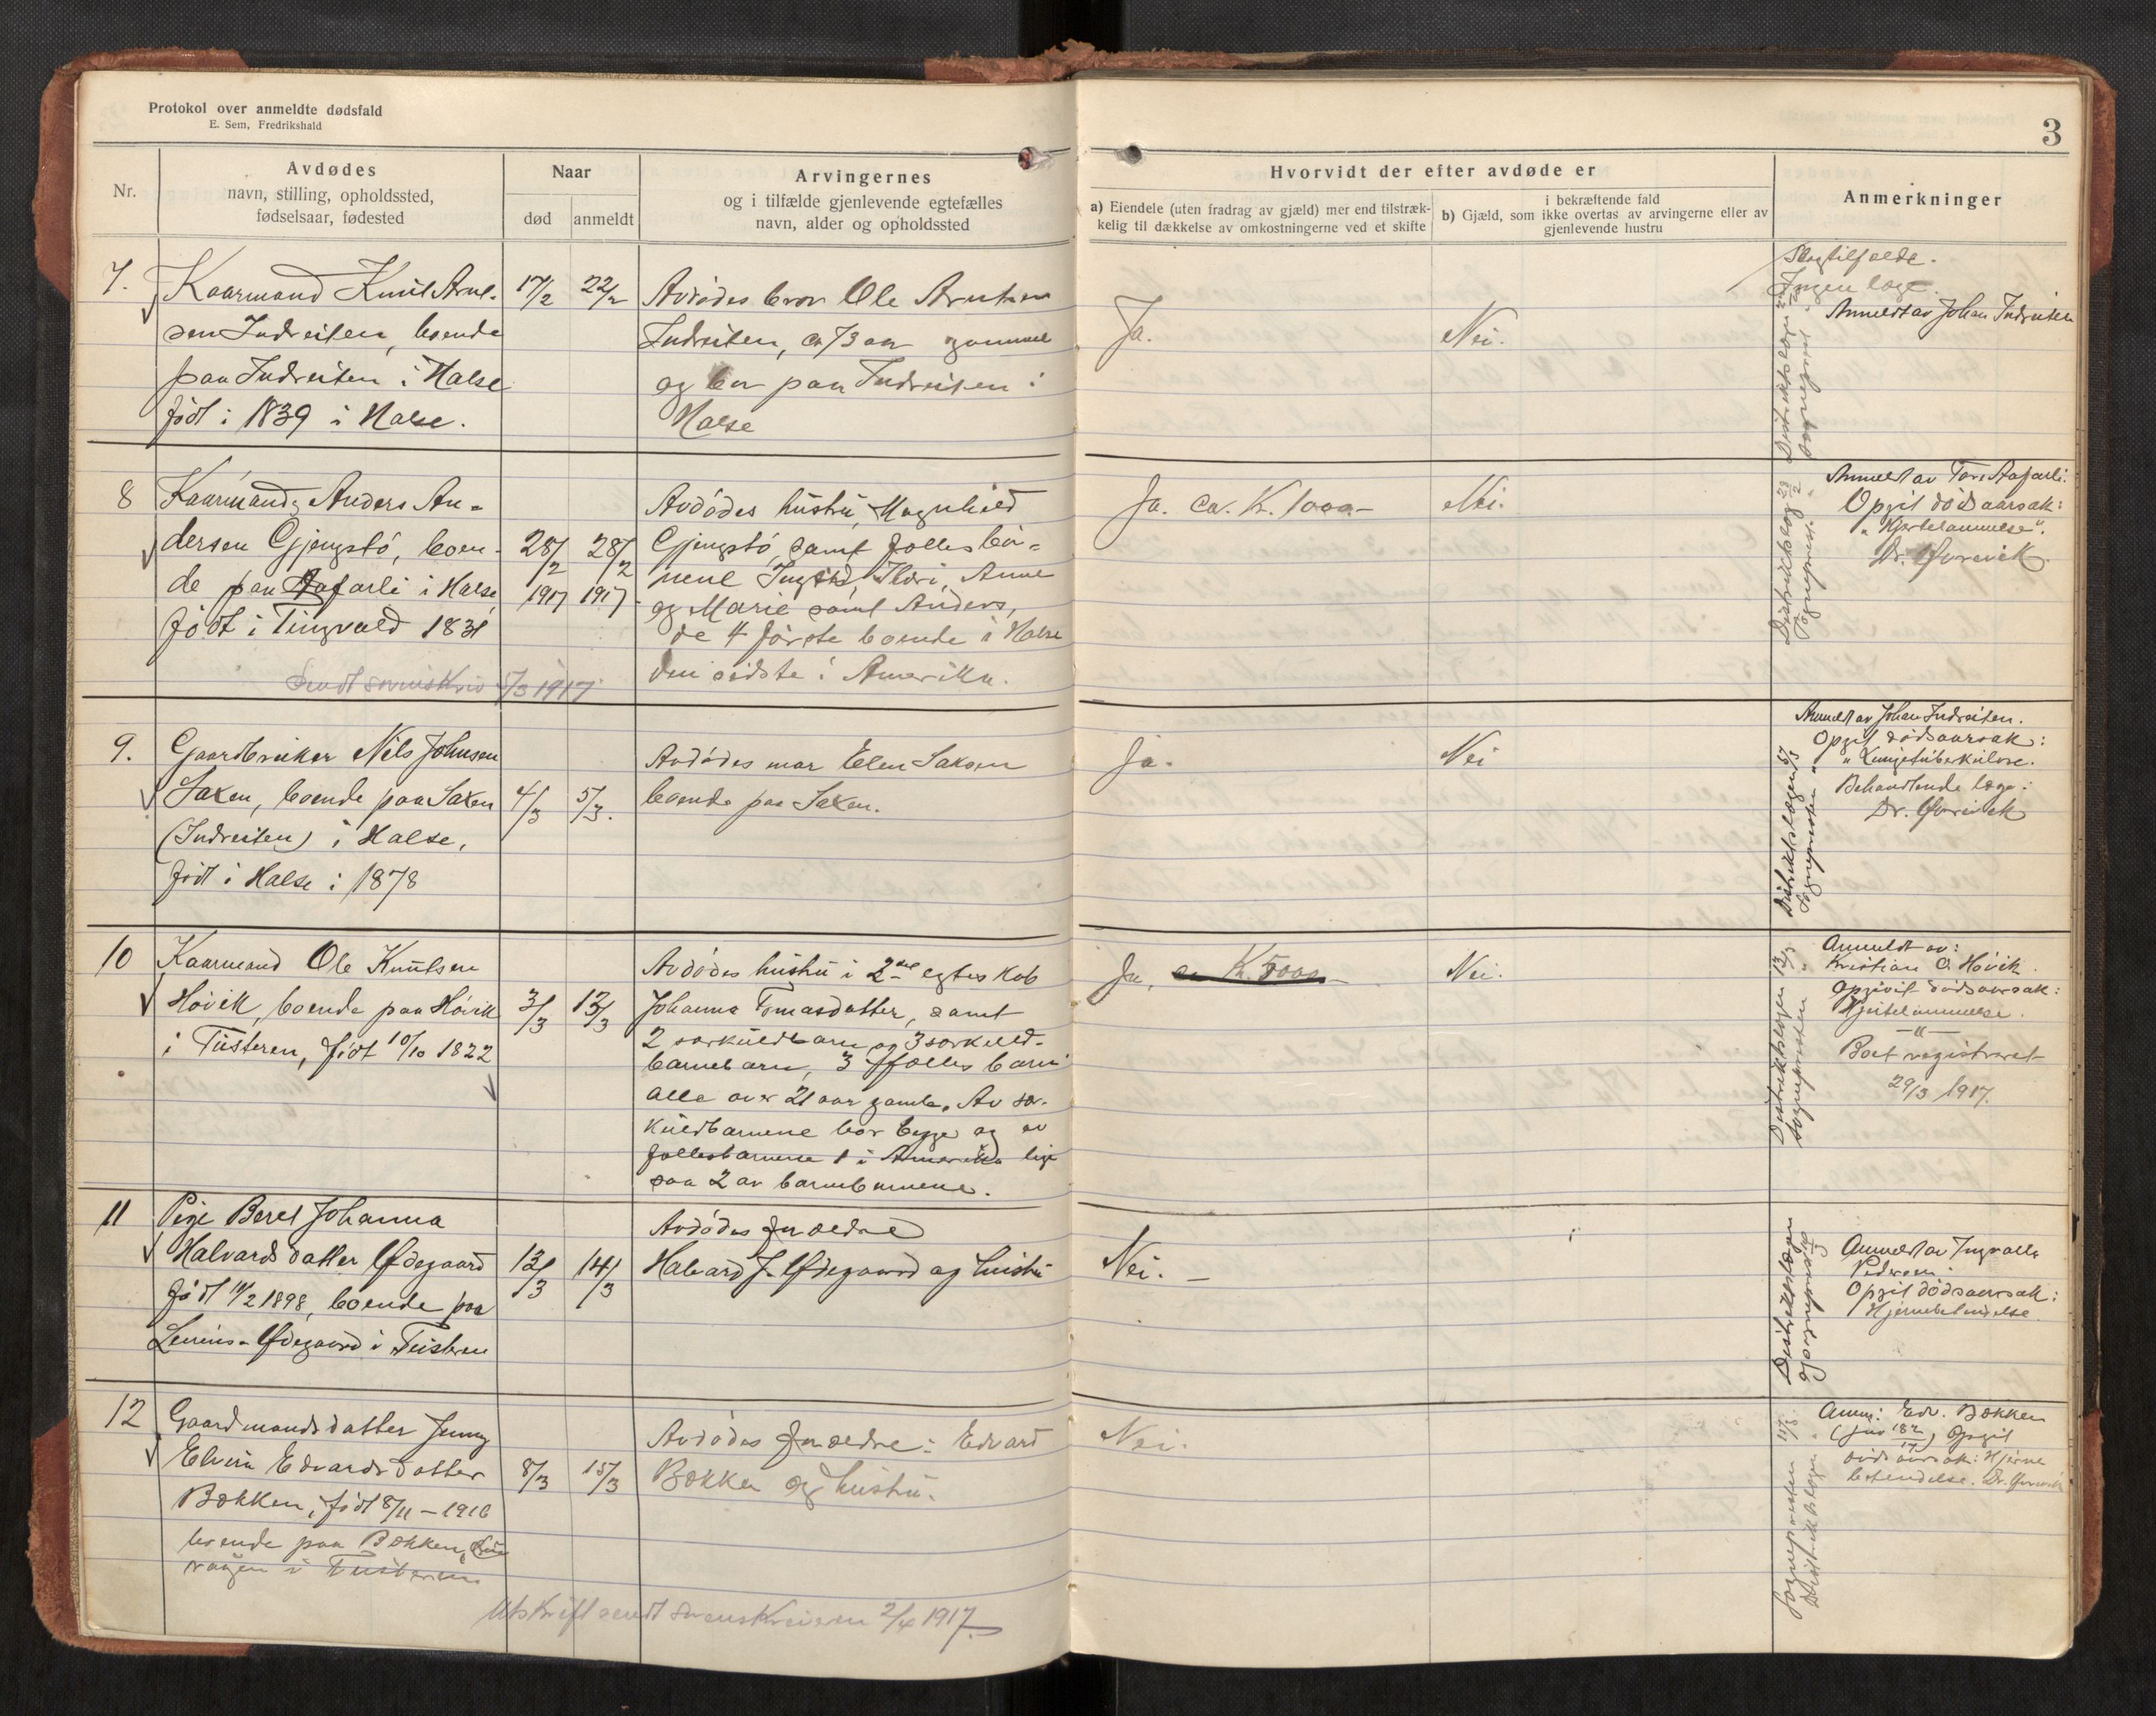 Protokol over anmeldte dødsfald
E. Sem, Fredrikshald
3
Nr.
Avdødes
navn, stilling, opholdssted,
fødselsaar, fødested
Naar
død
anmeldt
Arvingernes
og i tilfælde gjenlevende egtefælles
navn, alder og opholdssted
Hvorvidt der efter avdøde er
a) Eiendele (uten fradrag av gjæld) mer end tilstræk-
kelig til dækkelse av omkostningerne ved et skifte
i bekræftende fald
b) Gjæld, som ikke overtas av arvingerne eller av
gjenlevende hustru
Anmerkninger
7.
Kaarmand Knut Arnt-
sen Indreiten, boende
paa Indreiten i Halse
født i 1839 i Halse.
17/2
22/2
Avdødes bror Ole Arntsen
Indreiten, ca 73 aar gammel
og bor paa Indreiten i
Halse
Ja.
Nei.
Slagtilfælde.
Ingen læge.
Anmeldt av Johan Indreiten
8
Kaarmand Anders An-
dersen Gjengstø, boen-
de paa Aafarli i Halse
født i Tingvold 1831
28/2 1917
28/2 1917
Avdødes hustru, Magnhild
Gjengstø, samt fælles bør-
nene Ingrid, Anne
og Marie samt Anders,
de 4 første boende i Halse
den sidste i Amerika.
Sendt sorenskriv 5/3 1917
Ja. ca. K. 1000-
Nei.
Anmeldt av Tore Aafarli.
Opgit dødsaarsak:
"Hjertelammelse".
Dr. Øvrevik
9.
Gaardbruker Nils Johnsen
Saxen, boende paa Saxen
(Indreiten) i Halse,
født i Halse i 1878
4/3
5/3.
Avdødes mor Elen Saksen
boende paa Saxen.
Ja.
Nei
Anmeldt av Johan Indreiten.
Opgit dødsaarsak:
"Lungetuberkulose.
Behandlende læge:
Dr. Øvrevik
Distriktslægen 5/3
Sognepresten "
10
Kaarmand Ole Knutsen
Høvik, boende paa Høvik
i Tusteren, født 10/10 1822
3/3
13/3
Avdødes hustru i 2det egteskab
Johanna Tomasdatter, samt
2 særkuldbarn og 3 særkuld-
barnebarn, 3 fælles barn
alle over 21 aar gamle. Av sær-
kuldbarnene bor begge og av
fællesbarnene 1 i Amerika lige
saa 2 av barnebarnene.
Ja, ca K. 5000-
Nei.
Anmeldt av:
Kristian O. Høvik.
Opgivit dødsaarsak:
Hjertelammelse.
-"-
Boet registreret
29/3 1917.
Distriktslægen 13/3
Sognepresten "
11
Pige Beret Johanna
Halvardsdatter Ødegaard
født 14/2 1898, boende paa
Leerins-Ødegaard i Tusteren
12/3
14/3
Avdødes forældre
Halvard J. Ødegaard og hustru
Nei. -
Anmeldt av Ingvald
Pedersen.
Opgit dødsaarsak:
Hjernebetændelse.
12
Gaardmandsdatter Jenny
Elvira Edvardsdatter
Bækken, født 8/11 - 1916
boende paa Bækken,
vaagen i Tusteren
8/3
15/3
Avdødes forældre: Edvard
Bækken og hustru.
Nei.
Anm: Edv. Bækken
Opgit
dødsaarsak: Hjerne
betendelse. Dr. Øvrevik
Sognepresten
Distriktslægen "
Utskrift sendt sorenskriveren 2/4 1917.